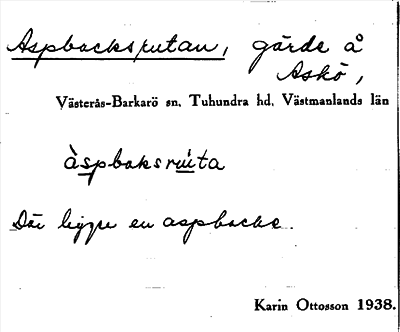 Aspbacksrutan, gärde å
Askö,
Västerås-Barkarö sn. Tuhundra hd. Västmanlands län
àspbaksruta
Där ligger en aspbacke.
Karin Ottosson 1938.